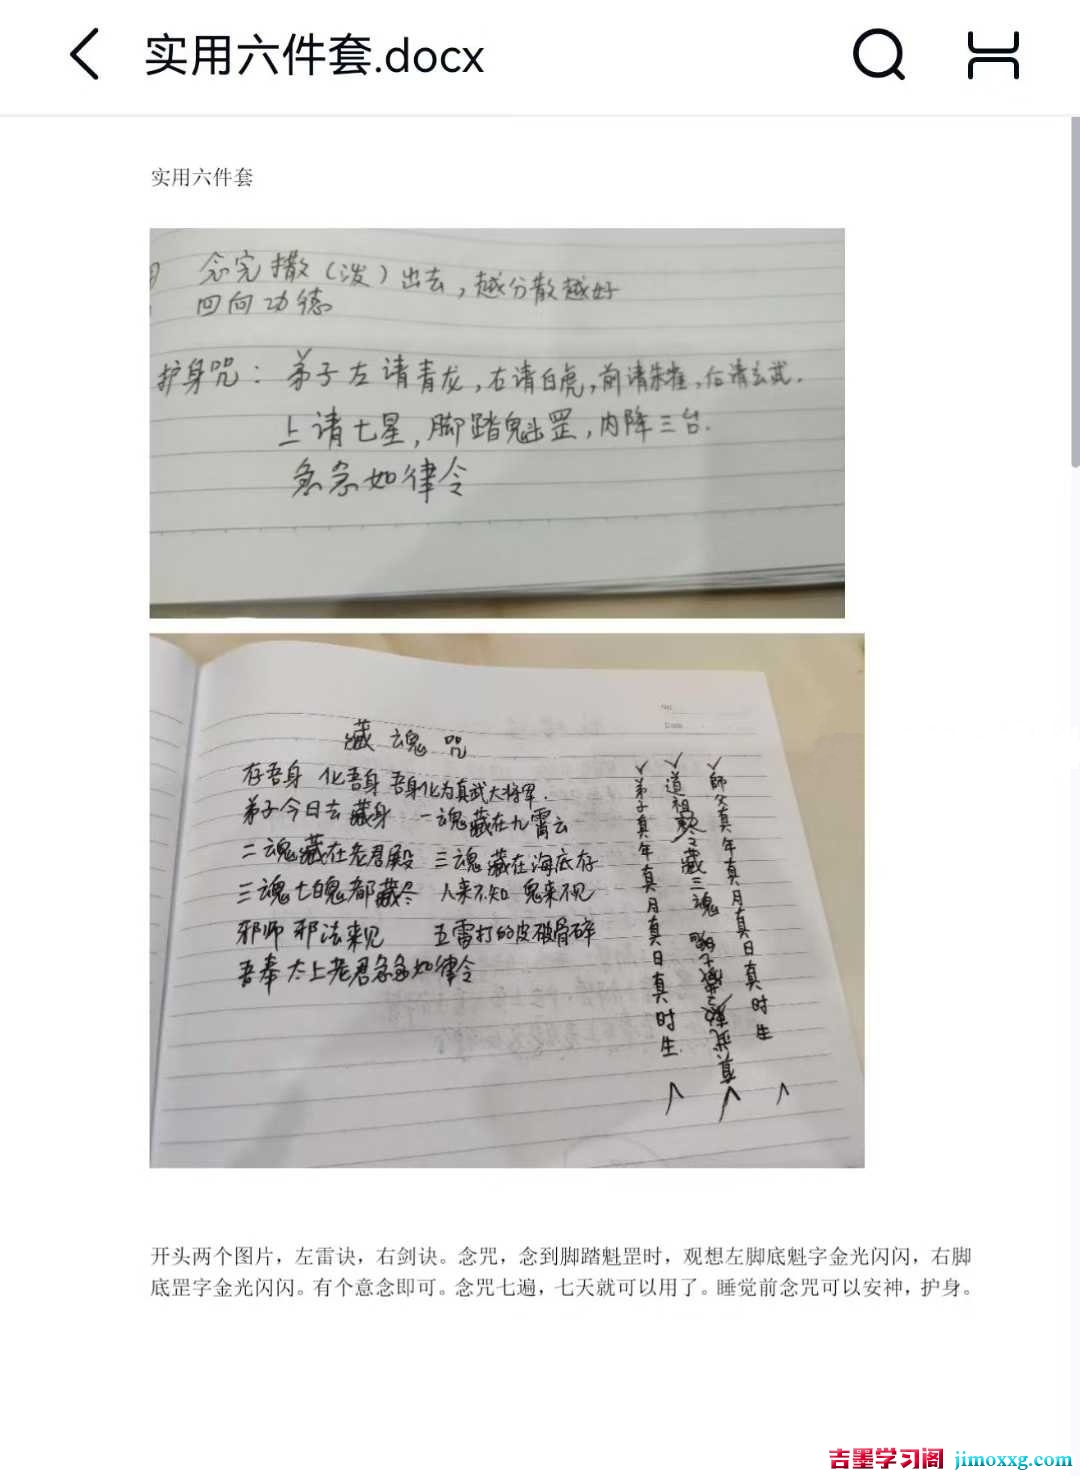 实用六件套.docx
实用六件套
念完撒（泼）出去，越分散越好
回向功德
护身咒：弟子左请青龙，右请白虎，前请朱雀，后请玄武．
上请七星，脚踏魁罡，内降三台．
急急如律令
No:
Date
藏魂咒
存吾身 化吾身 吾身化为真武大将军．
弟子今日去藏身 一魂藏在九霄云
二魂藏在老君殿 三魂藏在海底存
三魂七魄都藏 人来不知 鬼来不见
邪师邪法来见 五雷打的皮破骨碎
吾奉太上老君急急如律令
師父真年真月真日真时生
道祖 藏三魂
弟子真年真月真日真时生
开头两个图片，左雷诀，右剑诀。念咒，念到脚踏魁罡时，观想左脚底魁字金光闪闪，右脚
底罡字金光闪闪。有个意念即可。念咒七遍，七天就可以用了。睡觉前念咒可以安神，护身。
吉墨学习阁 jimoxxg.com